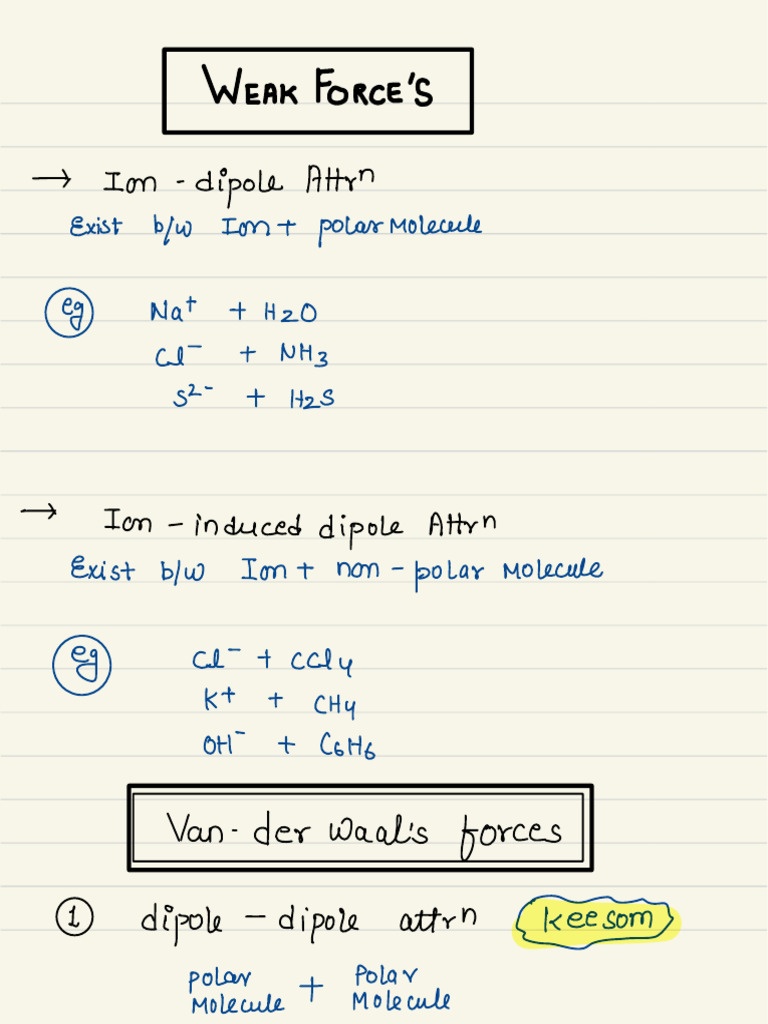 WEAK FORCE'S
→ Ion - dipole Attrⁿ
Exist b/w Ion + polar Molecule
eg Na⁺ + H2O
Cl⁻ + NH3
S²⁻ + H2S
→ Ion - induced dipole Attrⁿ
Exist b/w Ion + non - polar Molecule
eg Cl⁻ + CCl4
K⁺ + CH4
OH⁻ + C6H6
Van-der waal's forces
① dipole - dipole attrⁿ keesom
polar Molecule + Polar Molecule